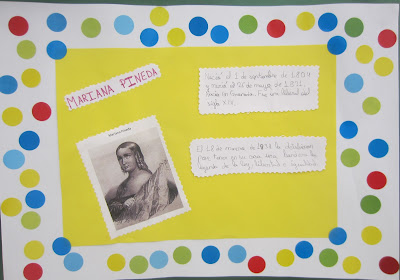 MARIANA PINEDA
Nació el 1 de septiembre de 1804
y murió el 26 de mayo de 1831.
Nació en Granada. Fue una liberal del
siglo XIX.
Mariana Pineda
El 18 de marzo de 1831 la
por tener en su casa una bandera
de la ley, libertad e igualdad